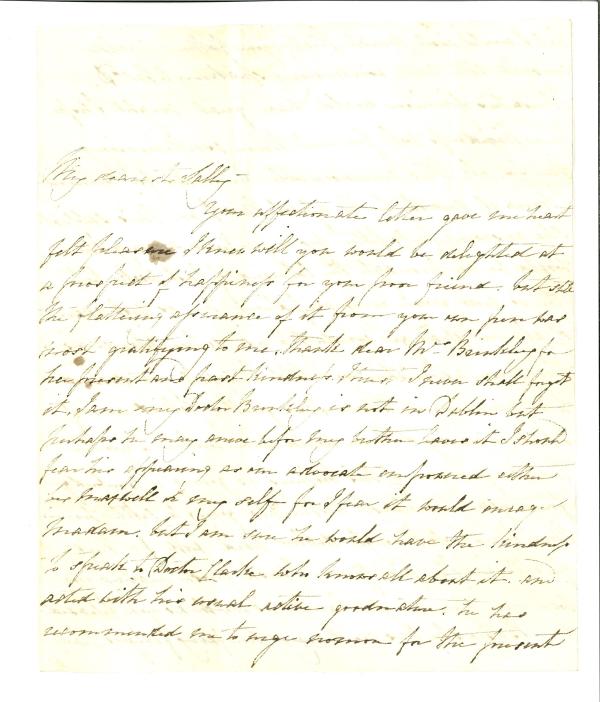 My dearest Sally
Your affectionate letter gave me heart
felt pleasure I knew well you would be delighted at
a prospect of happiness for your poor friend. but still
the flattering assurance of it from your own pen was
most gratifying to me. thank dear Mrs Brinkley for
her present and past kindness. I trust I never shall forget
it. I am sorry Doctor Brinkley is not in Dublin but
perhaps he may arrive before my brother leaves it I should
fear his appearing as an advocate empowered either
by Maxwell or my self for I fear it would enrage
Madam. but I am sure he would have the kindness
to speak to Doctor Clarke who knows all about it. and
acted with his usual active goodnature. he has
recommended me to urge no more for the present